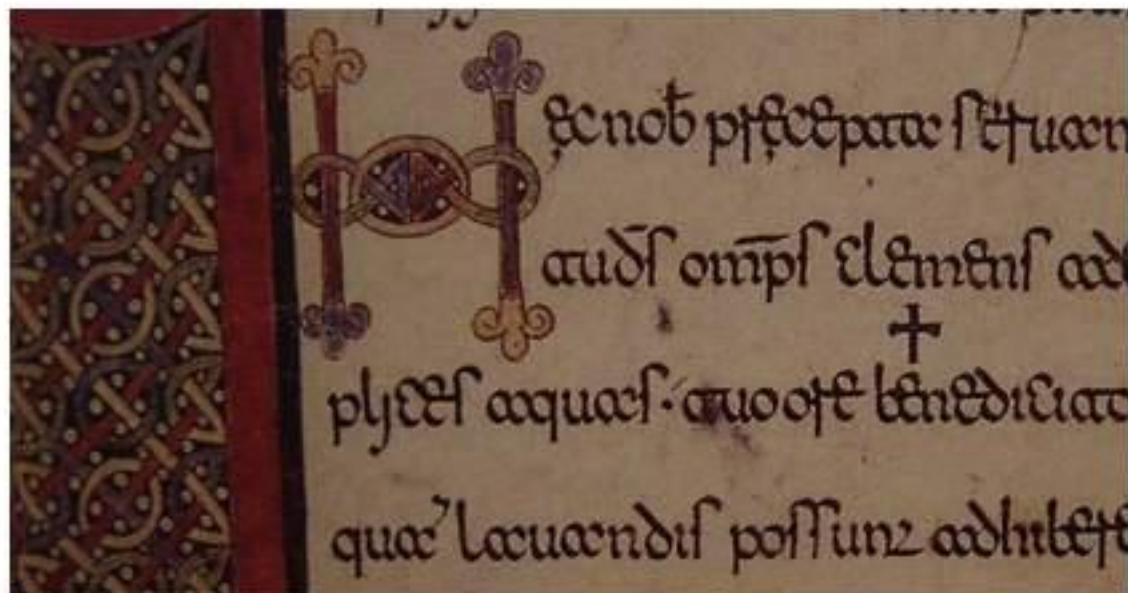 Hęc nob̄ pręcepta seruan
tu d̄s om̄ps clemens ade
plices aquas · tuo ore benedicit
qua lauandis possunt adhibere